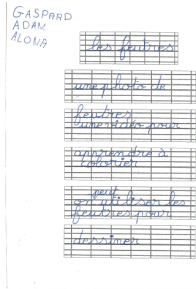 GASPARD
ADAM
ALONA
les feutres
une photo de
feutres
une video pour
apprendre à
colorier
peut
on utiliser les
feutres pour
dessiner